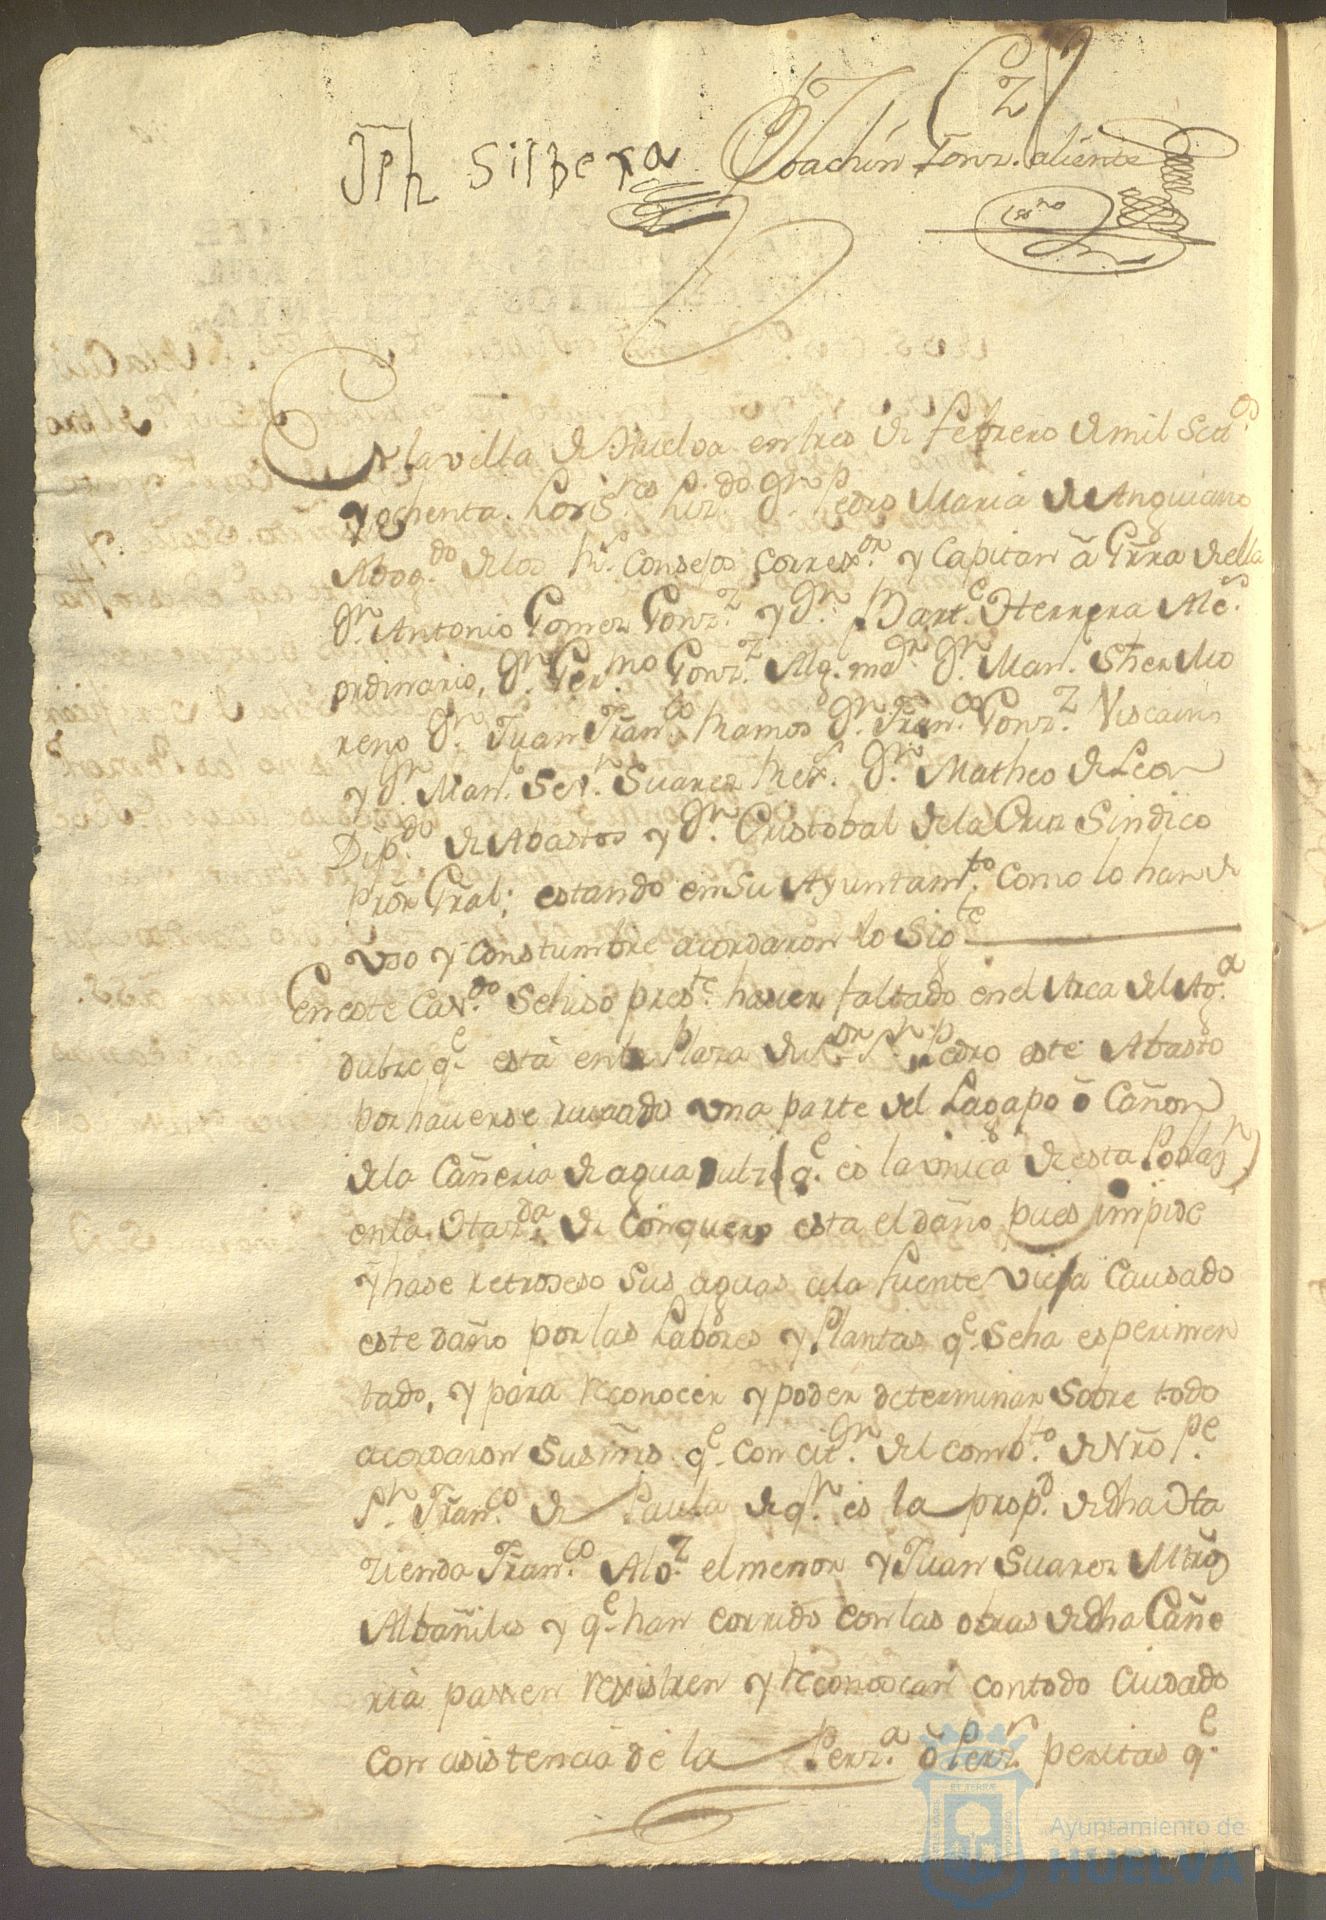 Jph Silbera Joachin Gonz. aliente
ssno
En la villa de Huelva en tres de febrero de mil setos.
y ochenta. Los Sres. Liz.do Dn. Pedro Maria de Anguiano
Abog.do de los Rs. Consejos Correxor. y Capitan â Grra de ella
Dn. Antonio Gomez Gonz.z y Dn. Bart.e Herrera Alc.s
ordinario, Dn. Ger.mo Gonz.z Alg. mor. Dn. Man. Mo
reno Dn. Juan Fran.co Ramos Dn. Fran.co Gonz.z Viscaino
y Dn. Man. Suarez Dn. Matheo de Leon
Dip.do de Abastos y Dn. Cristobal de la Cruz Sindico
Prôr Gral; estando en su Ayuntam.to como lo han de
uso y constumbre acordaron lo Sig.te
En este Cav.do Se hiso pres.te haver faltado en el Arca del Ag.a
dulze q.e està en la Plaza de Sor. Sn. Pedro este Abasto
por haverse una parte del Lagapo ô Cañon
de la Cañeria de agua dulze (q.e es la unica de esta Poblazn.)
en la de Conquero esta el daño pues impide
y hase retroseso sus aguas a la fuente vieja Causado
este daño por las Labores y Plantas q.e Se ha esperimen
tado, y para reconocer y poder determinar Sobre todo
acordaron Sus mrs. q.e con citn. del comb.to de Nrô P.e
Sn. Fran.co de Paula de q.n es la prop.d de dha Sta
zienda Fran.co Alo.z el menor y Juan Suarez Mtrôs
Albañiles y q.e han corrido con las obras de dha Cañe
ria passen rexistren y reconoscan con todo Cuidado
con asistencia de la Perz.a ô Perz.s peritas q.e
Ayuntamiento de
HUELVA